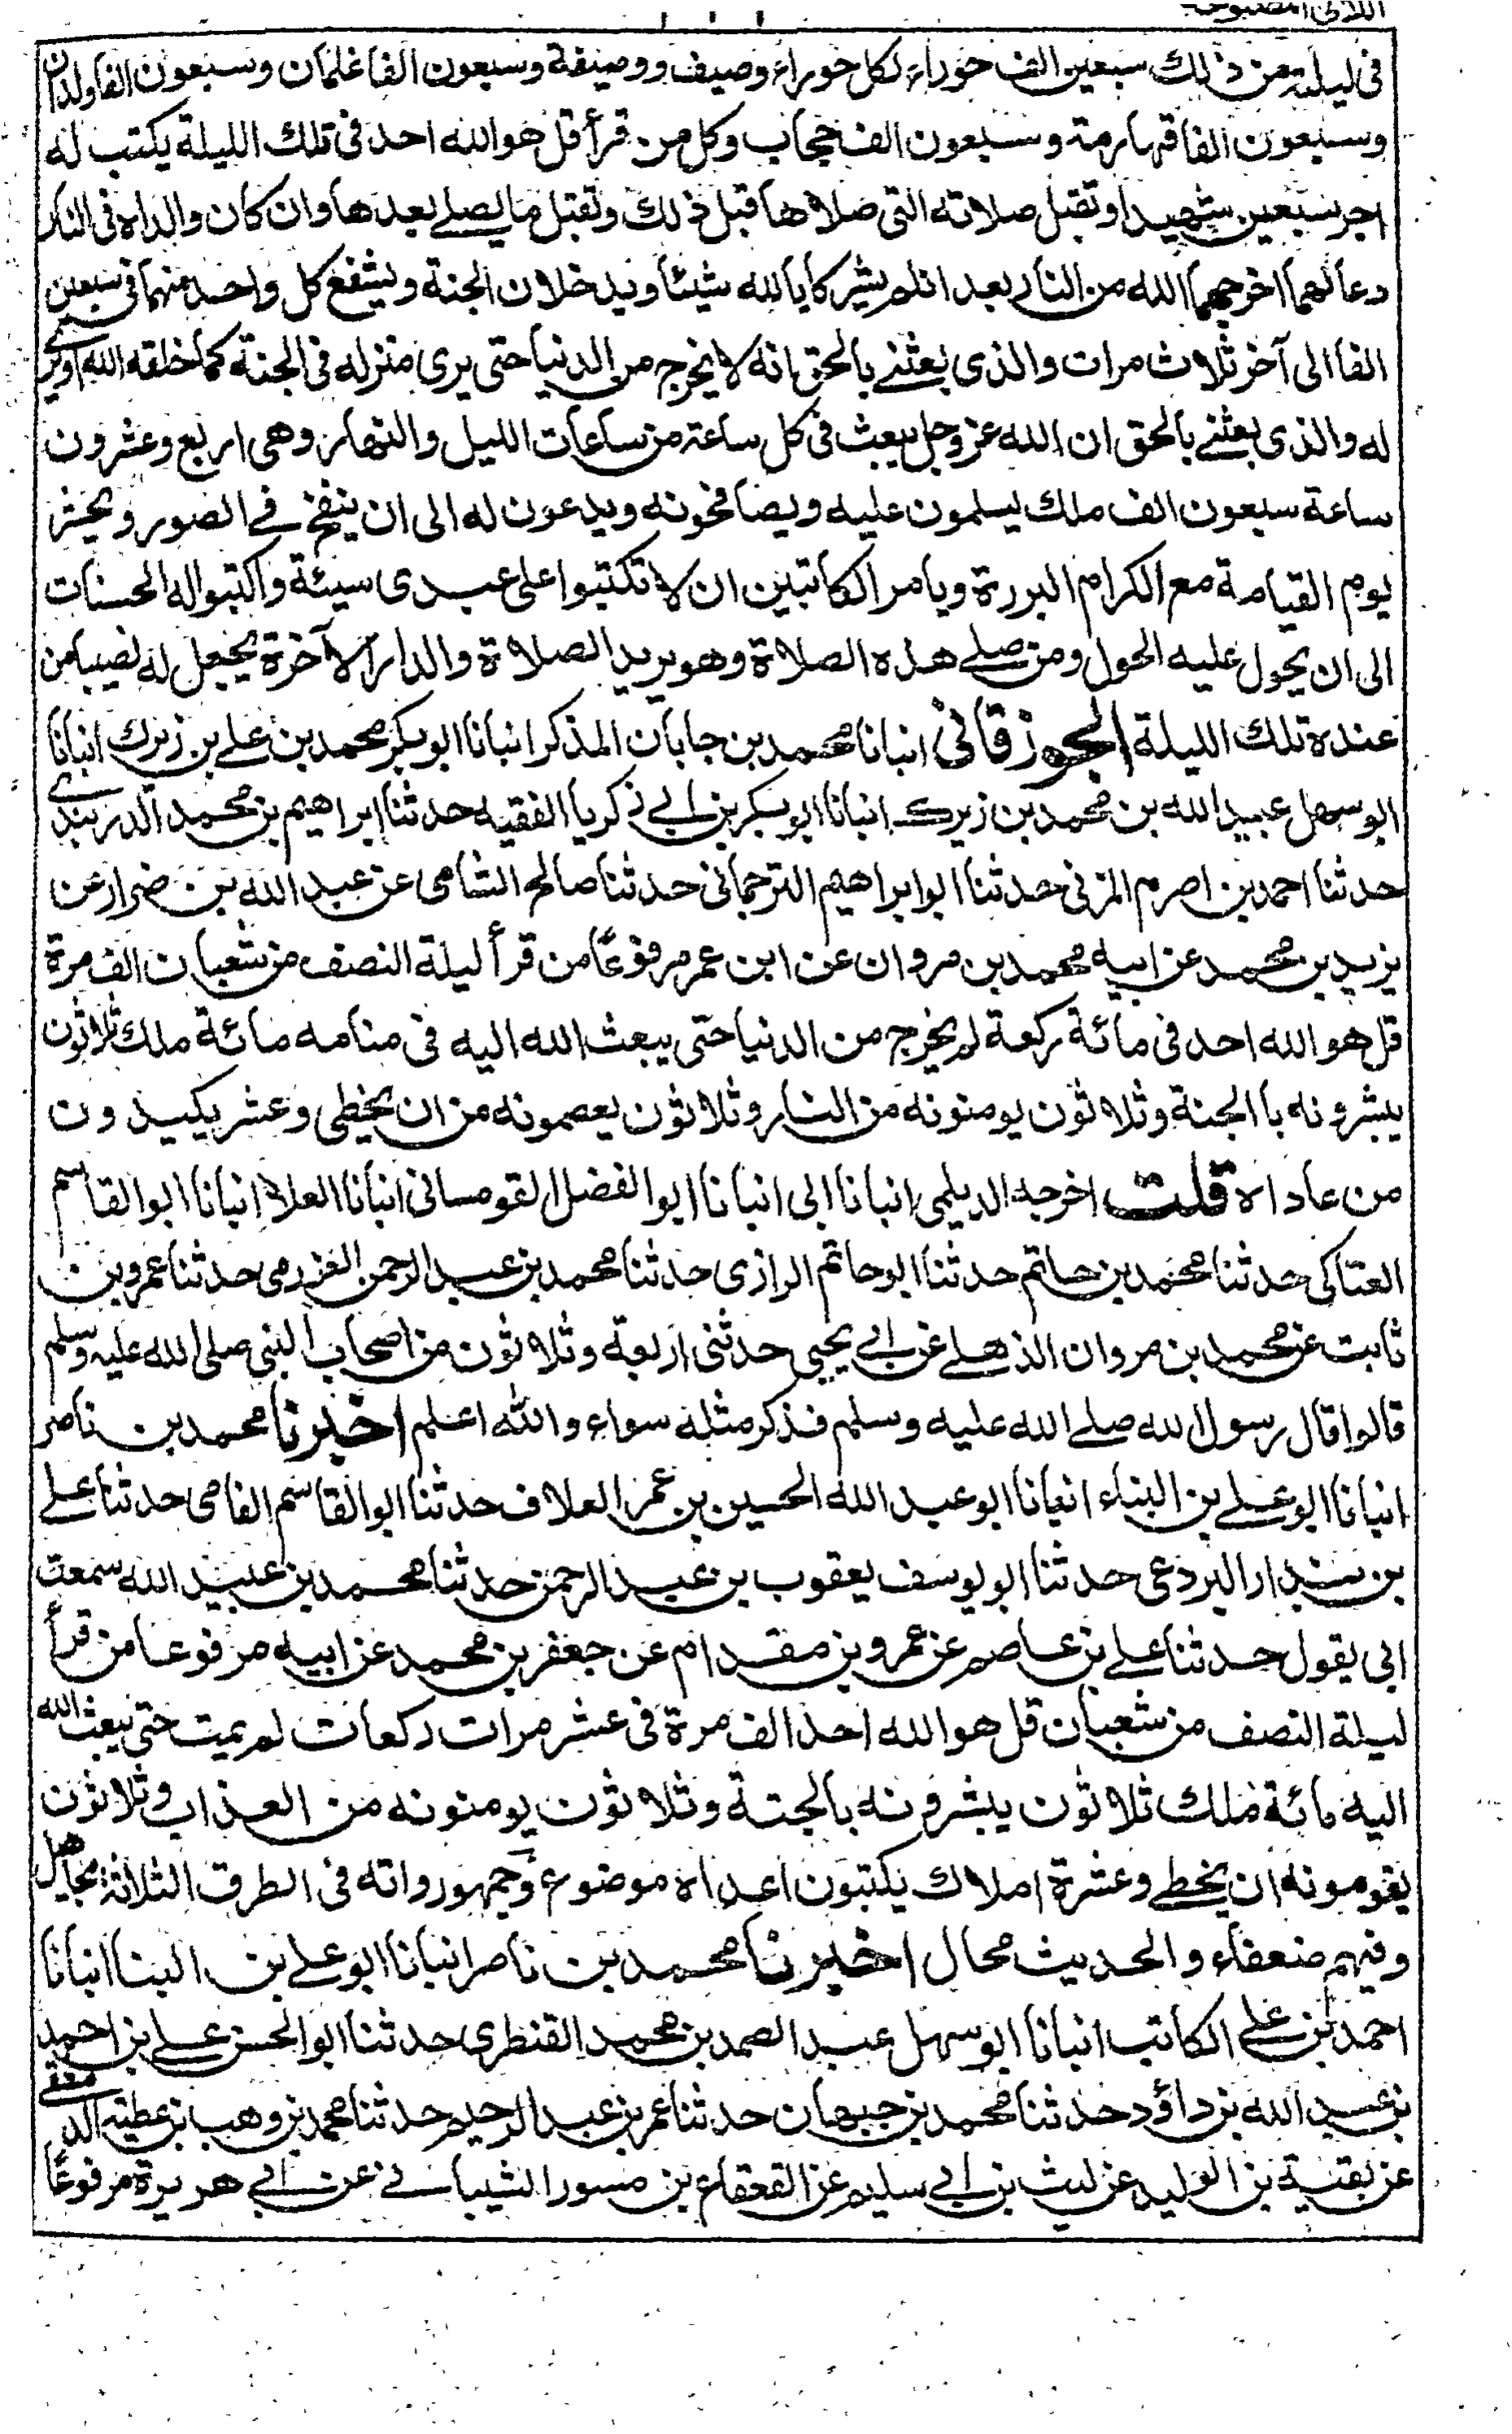 اللآلئ المصنوعة
فى ليلته من ذلك سبعين الف حوراء لكل حوراء وصيف ووصيفة وسبعون الفا غلمان وسبعون الفا ولدان
وسبعون الفا قهارمة وسبعون الف حجاب وكل من قرأ قل هو الله احد فى تلك الليلة يكتب له
اجر سبعين شهيدا وتقبل صلاته التى صلاها قبل ذلك وتقبل ما يصلے بعدها وان كان والداه فى النار
دعا لهما اخرجهما الله من النار بعد اذ لم يشركا بالله شيئا ويدخلان الجنة ويشفع كل واحد منهما فى سبعين
الفا الى آخر ثلاث مرات والذى بعثنے بالحق انه لا يخرج من الدنيا حتى يرى منزله فى الجنة كما خلقه الله او يرى
له والذى بعثنے بالحق ان الله عز وجل يبعث فى كل ساعة من ساعات الليل والنهار وهى اربع وعشرون
ساعة سبعون الف ملك يسلمون عليه ويصافحونه ويدعون له الى ان ينفخ فے الصور ويحشر
يوم القيامة مع الكرام البررة ويامر الكاتبين ان لا تكتبوا على عبدى سيئة واكتبوا له الحسنات
الى ان يحول عليه الحول ومن صلے هذه الصلاة وهو يريد الصلاة والدار الآخرة يجعل له نصيبا من
عنده تلك الليلة الجوزقانى انبانا محمد بن جابان المذكر انبانا ابو بكر محمد بن علے بن زيرك انبانا
ابو سهل عبيد الله بن محمد بن زيرك انبانا ابو بكر بن ابے زكريا الفقيه حدثنا ابراهيم بن محمد الدربندے
حدثنا احمد بن اصرم المزنى حدثنا ابو ابراهيم الترجمانى حدثنا صالح الشامى عن عبد الله بن ضرار عن
يزيد بن محمد عن ابيه محمد بن مروان عن ابن عمر مرفوعًا من قرأ ليلة النصف من شعبان الف مرة
قل هو الله احد فى مائة ركعة لم يخرج من الدنيا حتى يبعث الله اليه فى منامه مائة ملك ثلاثون
يبشرونه با الجنة وثلاثون يومنونه من النار وثلاثون يعصمونه من ان يخطى وعشر يكيدون
من عاداه قلت اخرجه الديلمى انبانا ابى انبانا ابو الفضل القومسانى انبانا العلاء انبانا ابو القاسم
الفتاكى حدثنا محمد بن حاتم حدثنا ابو حاتم الرازى حدثنا محمد بن عبد الرحمن العزرمى حدثنا عمرو بن
ثابت عن محمد بن مروان الذهلے عن ابے يحيى حدثنى اربعة وثلاثون من اصحاب النبى صلى الله عليه وسلم
قالوا قال رسول الله صلے الله عليه وسلم فذكر مثله سواء والله اعلم اخبرنا محمد بن ناصر
انبانا ابو علے بن البناء انبانا ابو عبد الله الحسين بن عمر العلاف حدثنا ابو القاسم الفامى حدثنا علے
بن بندار البردعى حدثنا ابو يوسف يعقوب بن عبد الرحمن حدثنا محمد بن عبيد الله سمعت
ابى يقول حدثنا علے بن عاصم عن عمرو بن مقدام عن جعفر بن محمد عن ابيه مرفوعا من قرأ
ليلة النصف من شعبان قل هو الله احد الف مرة فى عشر مرات ركعات لم يمت حتى يبعث الله
اليه مائة ملك ثلاثون يبشرونه بالجنة وثلاثون يومنونه من العذاب وثلاثون
يقومونه ان يخطے وعشرة املاك يكتبون اعداه موضوع وجمهور رواته فى الطرق الثلاثة مجاهيل
وفيهم ضعفاء والحديث محال اخبرنا محمد بن ناصر انبانا ابو علے بن البنا انبانا
احمد بن علے الكاتب انبانا ابو سهل عبد الصمد بن محمد القنطرى حدثنا ابو الحسن علے بن احمد
بن عبد الله بن داؤد حدثنا محمد بن جبهان حدثنا عمر بن عبد الرحيم حدثنا محمد بن وهب بن عطية الدمشقے
عن بقية بن الوليد عن ليث بن ابے سليم عن القعقاع بن مسور الشيبانے عن ابے هريرة مرفوعًا